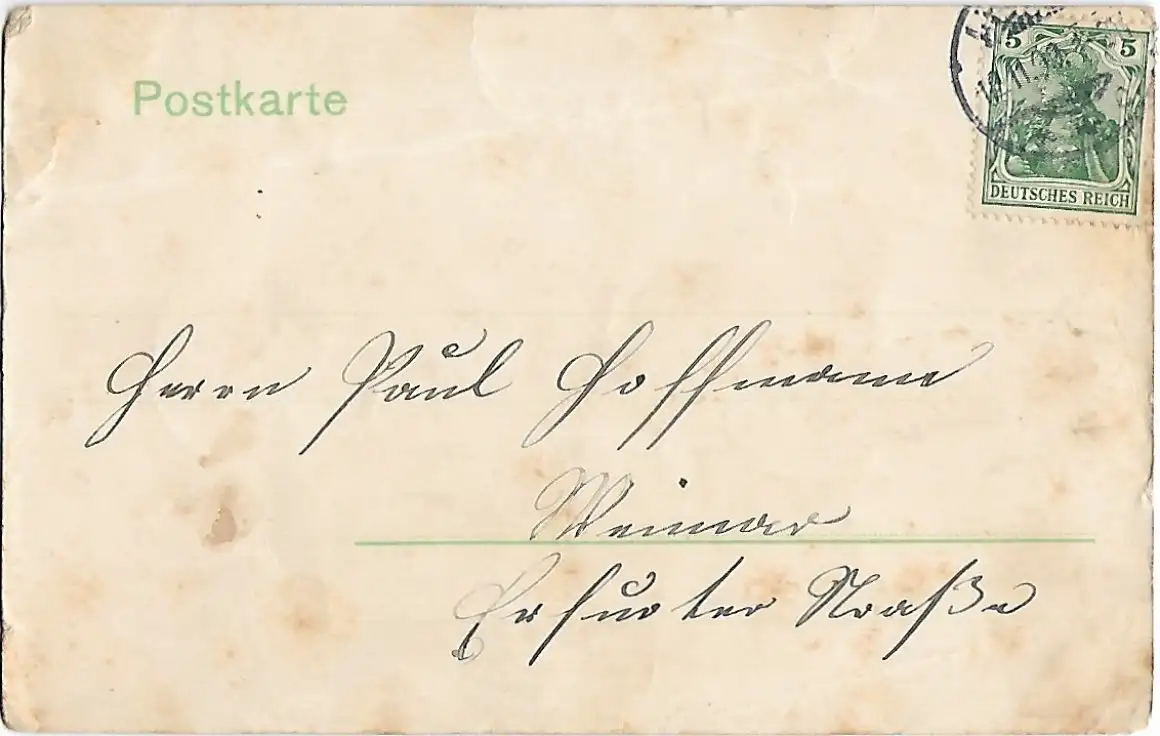 Postkarte
5 5
DEUTSCHES REICH
Herrn Paul Hoffmann
Weimar
Erfurter Straße